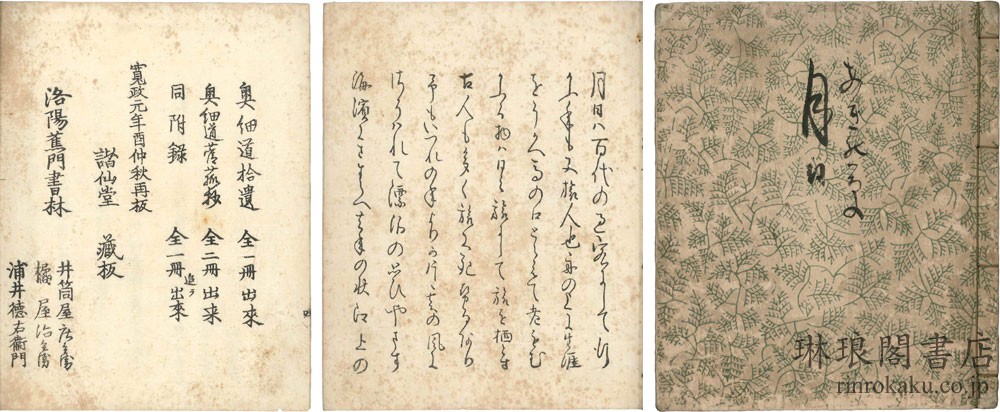 月日
月日ハ百代の過客にして行
かふ年も又旅人也舟の上に生涯
をうかへ馬の口とらえて老をむ
かふる物ハ日々旅にして旅を栖とす
古人も多く旅に死せるあり
予もいつれの年よりか片雲の風に
さそハれて漂泊の思ひやます
海濱にさすらへ去年の秋江上の
奥細道拾遺 全一冊出来
奥細道菅菰抄 全二冊出来
同附録 全一冊 追テ出来
寛政元年酉仲秋再板
諧仙堂 藏板
洛陽蕉門書林
井筒屋庄兵衛
橘屋治兵衛
浦井徳右衛門
琳琅閣書店
rinrokaku.co.jp